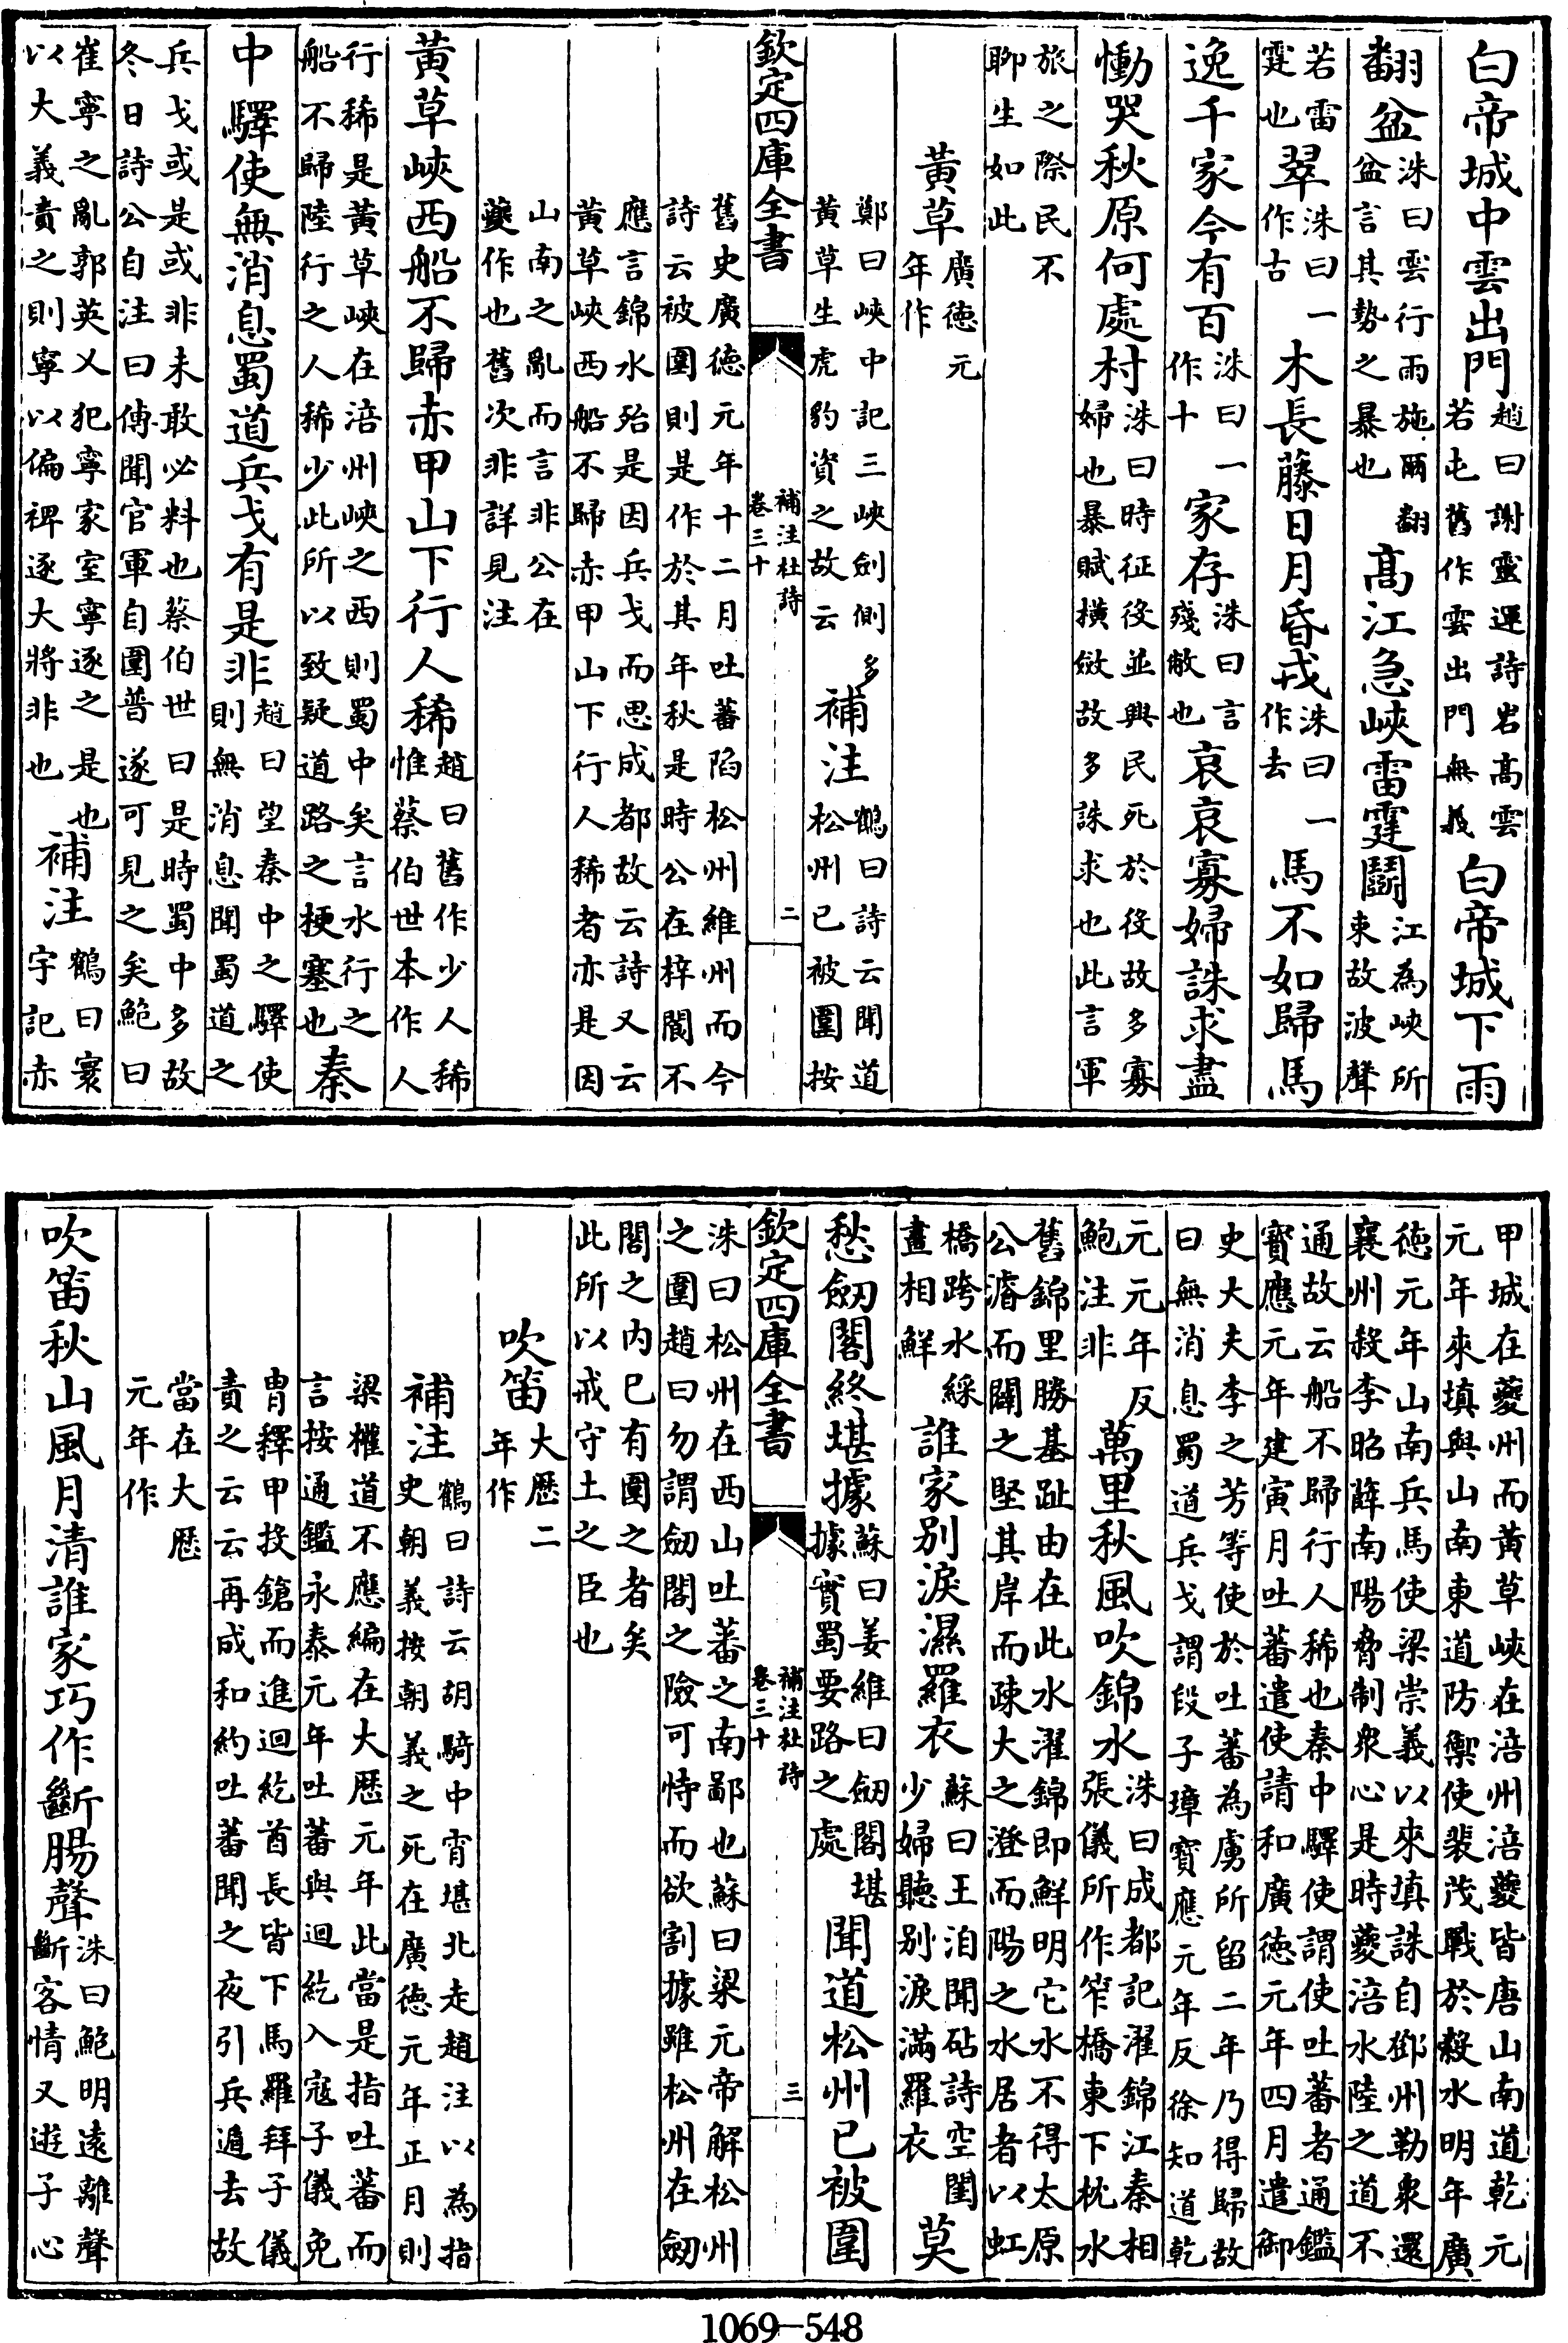 白帝城中雲出門趙曰謝靈運詩岩高雲若屯舊作雲出門無義白帝城下雨
翻盆洙曰雲行雨施爾翻盆言其勢之暴也高江急峽雷霆鬬江為峽所束故波聲
若雷霆也翠洙曰一作古木長藤日月昏戎洙曰一作去馬不如歸馬
逸千家今有百洙曰一作十家存洙曰言殘敝也哀哀寡婦誅求盡
慟哭秋原何處村洙曰時征役並興民死於役故多寡婦也暴賦橫斂故多誅求也此言軍
旅之際民不聊生如此
黃草廣德元年作
鄭曰峽中記三峽劍側多黃草生虎豹資之故云補注鶴曰詩云聞道松州已被圍按
欽定四庫全書
補注杜詩
卷三十
二
舊史廣德元年十二月吐蕃陷松州維州而今詩云被圍則是作於其年秋是時公在梓閬不
應言錦水殆是因兵戈而思成都故云詩又云黃草峽西船不歸赤甲山下行人稀者亦是因
山南之亂而言非公在夔作也舊次非詳見注
黃草峽西船不歸赤甲山下行人稀趙曰舊作少人稀惟蔡伯世本作人
行稀是黃草峽在涪州峽之西則蜀中矣言水行之船不歸陸行之人稀少此所以致疑道路之梗塞也秦
中驛使無消息蜀道兵戈有是非趙曰望秦中之驛使則無消息聞蜀道之
兵戈或是或非未敢必料也蔡伯世曰是時蜀中多故冬日詩公自注曰傳聞官軍自圍普遂可見之矣鮑曰
崔寧之亂郭英乂犯寧家室寧逐之是也以大義責之則寧以偏裨逐大將非也補注鶴曰寰宇記赤
甲城在夔州而黃草峽在涪州涪夔皆唐山南道乾元元年來填與山南東道防禦使裴茂戰於穀水明年廣
德元年山南兵馬使梁崇義以來填誅自鄧州勒衆還襄州殺李昭薛南陽脅制衆心是時夔涪水陸之道不
通故云船不歸行人稀也秦中驛使謂使吐蕃者通鑑寶應元年建寅月吐蕃遣使請和廣德元年四月遣御
史大夫李之芳等使於吐蕃為虜所留二年乃得歸故曰無消息蜀道兵戈謂段子璋寶應元年反徐知道乾
元元年反鮑注非萬里秋風吹錦水洙曰成都記濯錦江秦相張儀所作笮橋東下枕水
舊錦里勝基趾由在此水濯錦即鮮明它水不得太原公濬而闢之堅其岸而疎大之澄而陽之水居者以虹
橋跨水綵畫相鮮誰家別淚濕羅衣蘇曰王洎聞砧詩空閨少婦聽別淚滿羅衣莫
愁劒閣終堪據蘇曰姜維曰劒閣堪據實蜀要路之處聞道松州已被圍
欽定四庫全書
補注杜詩
卷三十
三
洙曰松州在西山吐蕃之南鄙也蘇曰梁元帝解松州之圍趙曰勿謂劒閣之險可恃而欲割據雖松州在劒
閣之內已有圍之者矣此所以戒守土之臣也
吹笛大歷二年作
補注鶴曰詩云胡騎中宵堪北走趙注以為指史朝義按朝義之死在廣德元年正月則
梁權道不應編在大歷元年此當是指吐蕃而言按通鑑永泰元年吐蕃與迴紇入寇子儀免
胄釋甲投鎗而進迴紇酋長皆下馬羅拜子儀責之云云再成和約吐蕃聞之夜引兵遁去故
當在大歷元年作
吹笛秋山風月清誰家巧作斷腸聲洙曰鮑明遠離聲斷客情又遊子心
1069-548